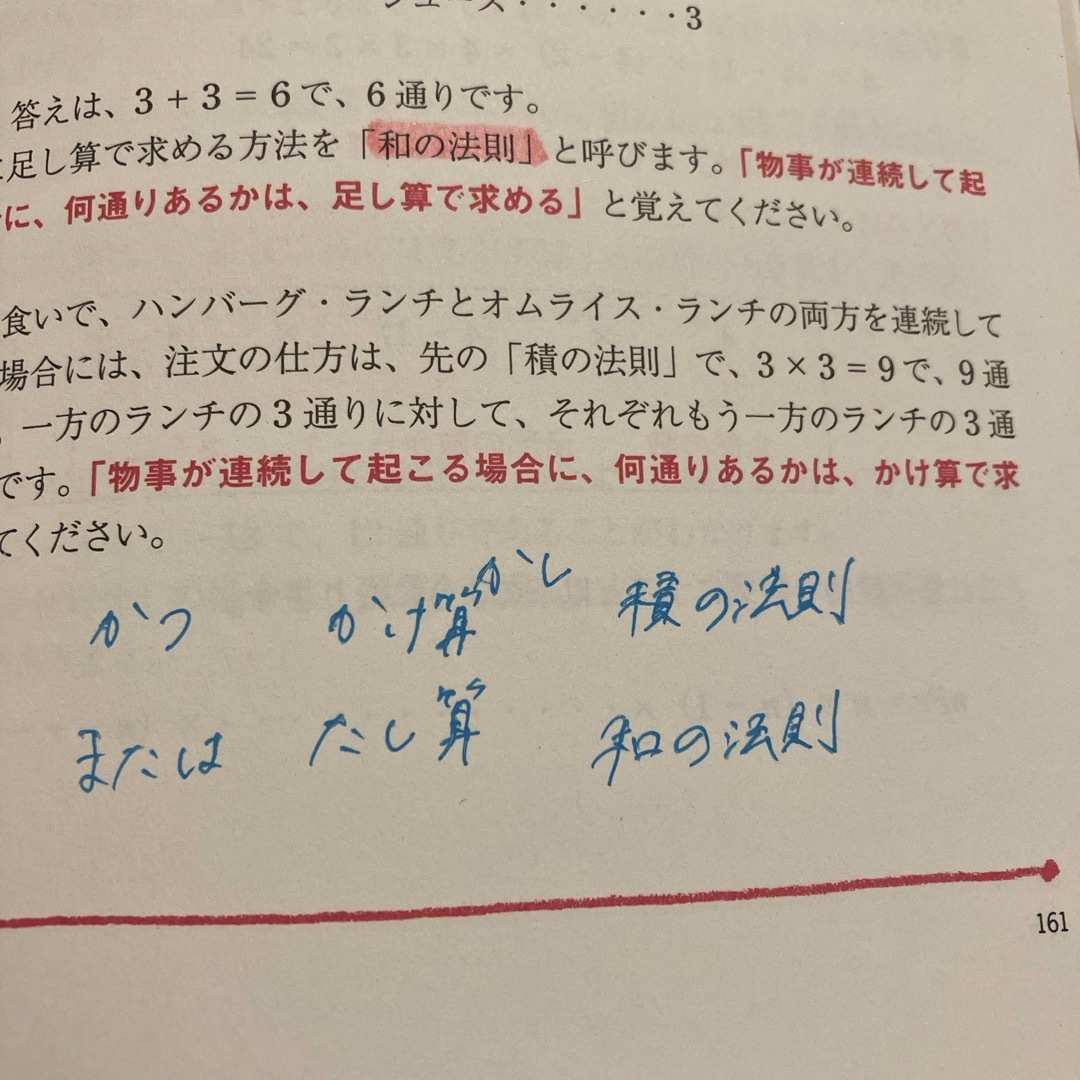 ジュース・・・・・・3
答えは、3＋3＝6で、6通りです。
足し算で求める方法を「和の法則」と呼びます。「物事が連続して起
に、何通りあるかは、足し算で求める」と覚えてください。
食いで、ハンバーグ・ランチとオムライス・ランチの両方を連続して
場合には、注文の仕方は、先の「積の法則」で、3×3＝9で、9通
一方のランチの3通りに対して、それぞれもう一方のランチの3通
です。「物事が連続して起こる場合に、何通りあるかは、かけ算で求
てください。
かつ かけ算 かし 積の法則
または たし算 和の法則
161